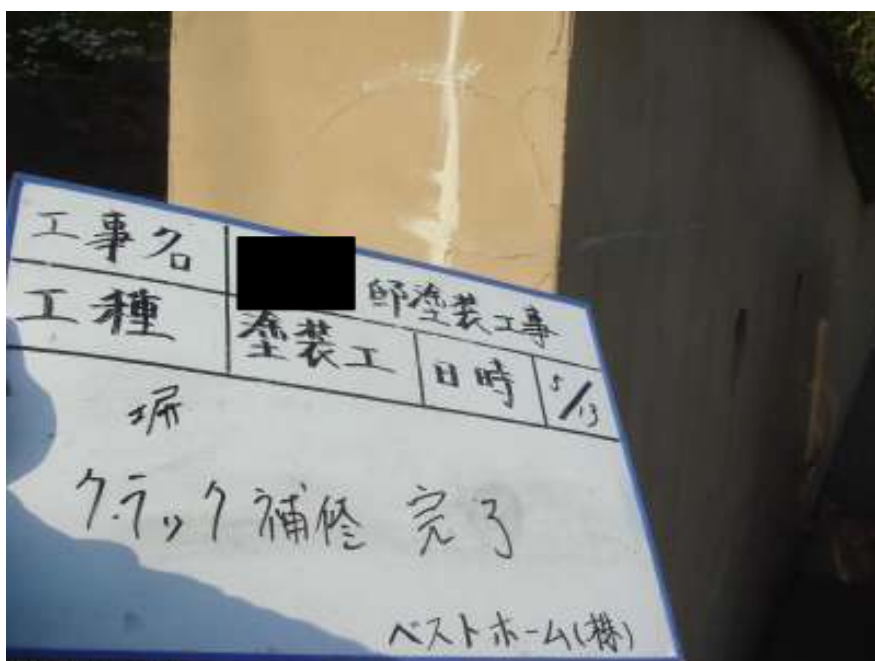 工事名 邸塗装工事
工種 塗装工 日時 5/13
塀
クラック補修 完了
ベストホーム(株)